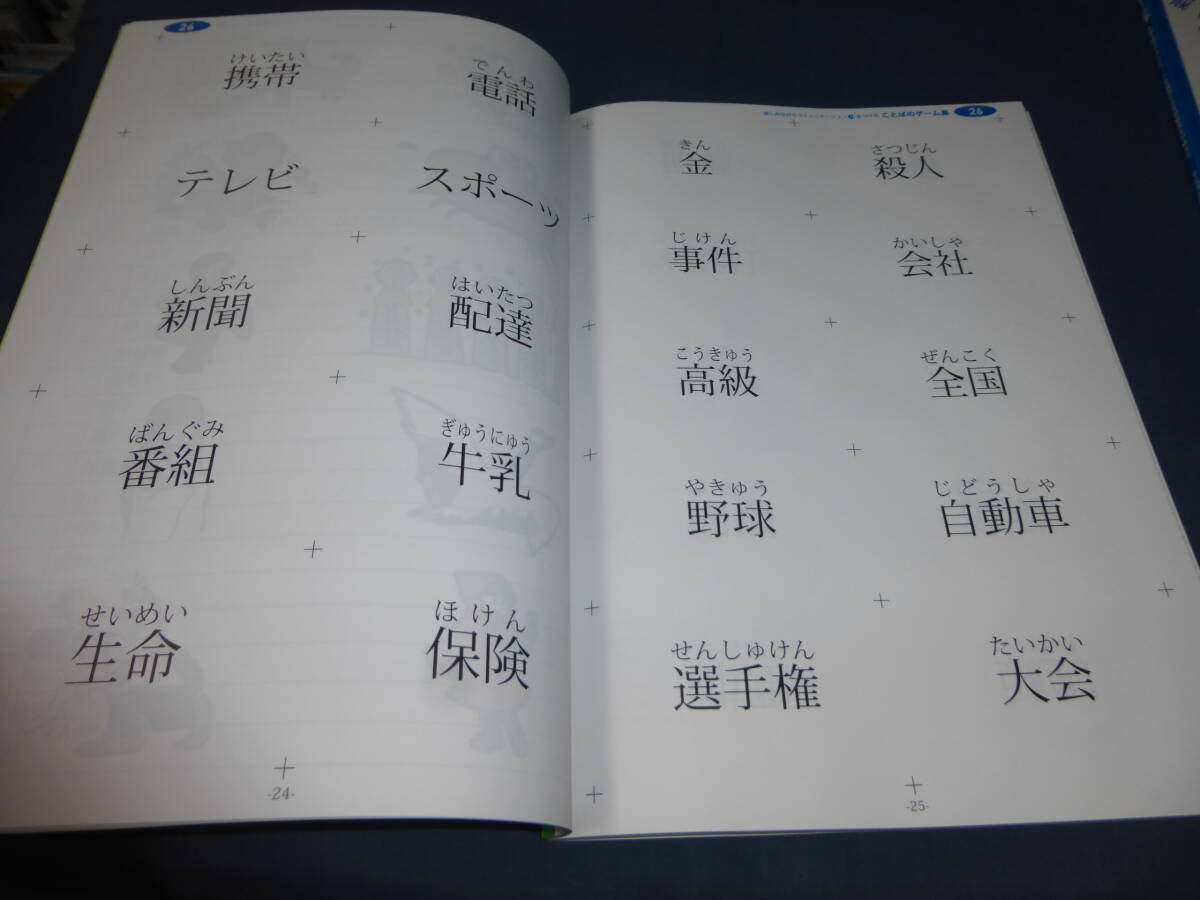 26
けいたい でんわ
携帯 電話
テレビ スポーツ
しんぶん はいたつ
新聞 配達
ばんぐみ ぎゅうにゅう
番組 牛乳
せいめい ほけん
生命 保険
-24-
ことばのゲーム集 26
きん さつじん
金 殺人
じけん かいしゃ
事件 会社
こうきゅう ぜんこく
高級 全国
やきゅう じどうしゃ
野球 自動車
せんしゅけん たいかい
選手権 大会
-25-